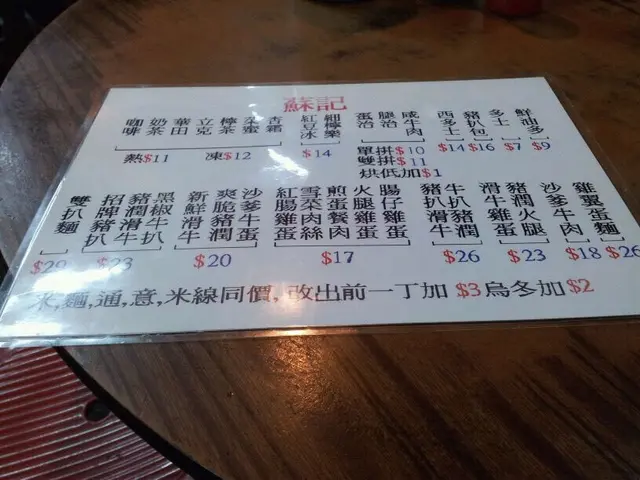 蘇記
咖啡
奶茶
華田
立克
檸茶
杏霜
熱$11 凍$12
紅豆冰
$14
蛋治
腿治
咸牛肉
單拼$10
雙拼$11
烘低加$1
西多士
$14
豬扒包
$16
多士
$7
鮮油多
$9
雙扒麵
$29
招牌豬扒
豬潤滑牛
黑椒牛扒
$23
新鮮滑牛
爽脆豬潤
沙爹牛肉
$20
紅腸雞蛋
雪菜肉絲
煎蛋餐肉
火腿雞蛋
腸仔雞蛋
$17
豬扒滑牛
牛扒豬潤
$26
滑牛雞蛋
豬潤火腿
$23
沙爹牛肉
$18
雞翼蛋麵
$26
米,麵,通,意,米線同價, 改出前一丁加 $3烏冬加$2